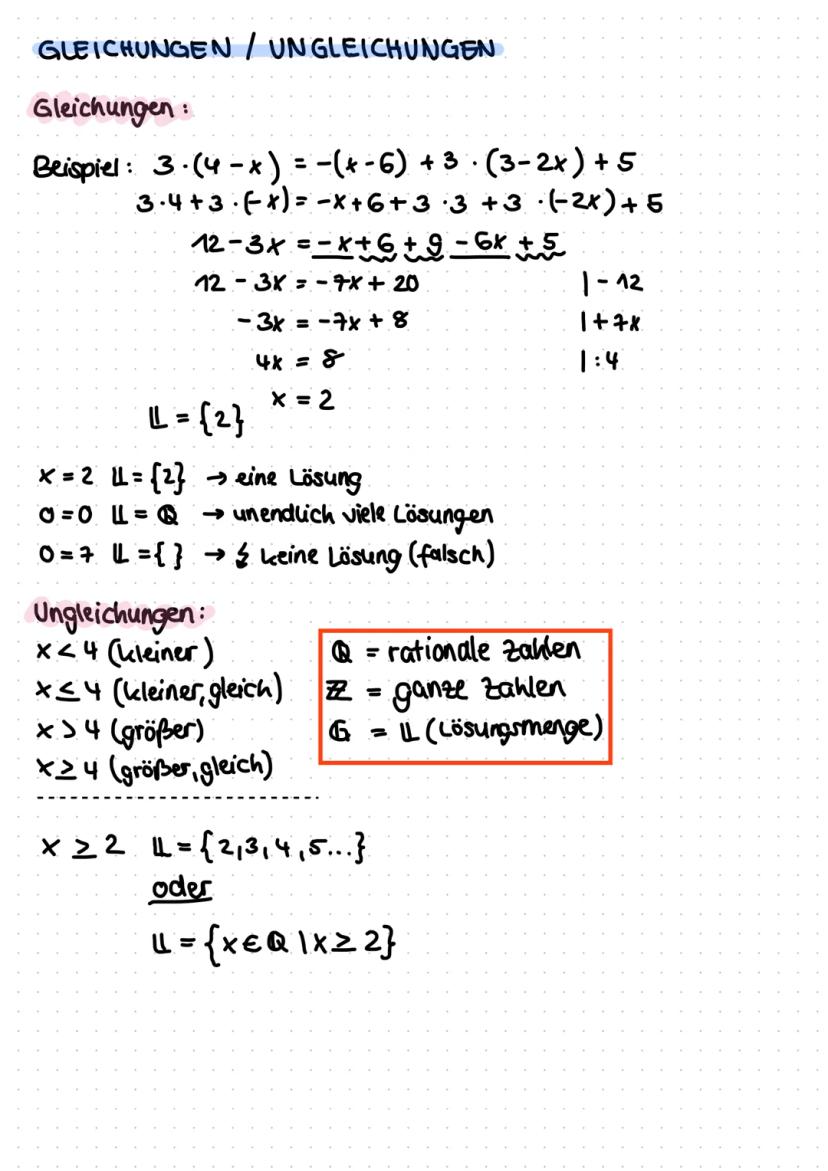 GLEICHUNGEN / UNGLEICHUNGEN
Gleichungen:
Beispiel: 3·(4-x) = -(x-6) + 3·(3-2x) + 5
3·4+3·(-x) = -x+6+3·3+3·(-2x)+5
12-3x = -x+6+9-6x+5
12-3x = -7x+20 |-12
-3x = -7x+8 |+7x
4x = 8 |:4
x = 2
𝕃 = {2}
x=2 𝕃={2} → eine Lösung
0=0 𝕃=ℚ → unendlich viele Lösungen
0=7 𝕃={ } → ↯ keine Lösung (falsch)
Ungleichungen:
x<4 (kleiner)
x≤4 (kleiner, gleich)
x>4 (größer)
x≥4 (größer, gleich)
ℚ = rationale Zahlen
ℤ = ganze Zahlen
𝔾 = 𝕃 (Lösungsmenge)
x ≥ 2 𝕃={2,3,4,5...}
oder
𝕃={x∈ℚ|x≥2}